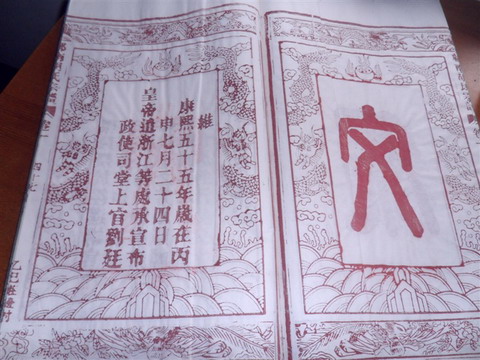 文
維
康熙五十五年歲在丙
申七月二十四日
皇帝遣浙江等處承宣布
政使司堂上官劉廷
卷一
四十七